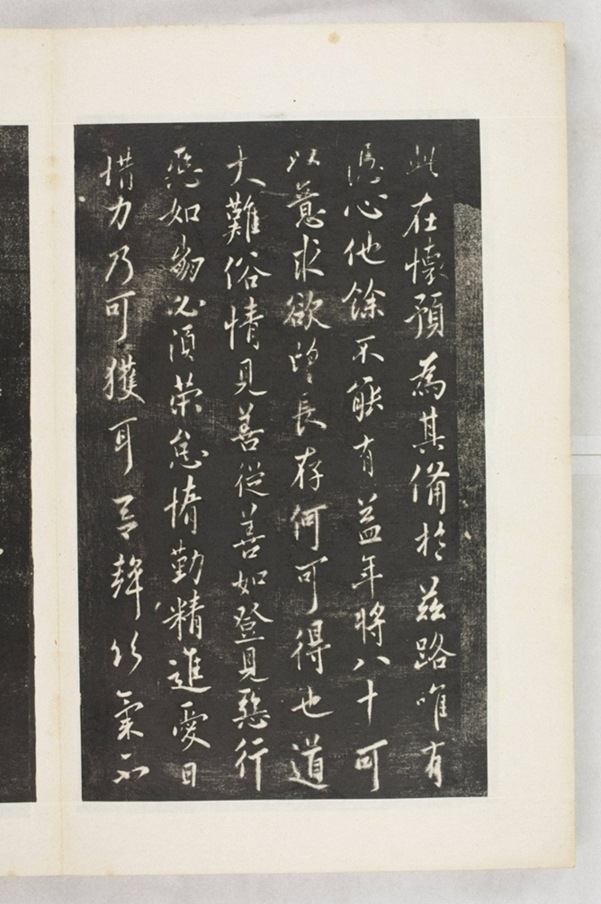 此在懷預為其備於茲路唯有
隱心他餘不能有益年將八十可
以意求欲望長存何可得也道
大難俗情見善從善如登見惡行
惡如崩必須榮怠惰勤精進愛日
惜力乃可獲耳言聲以氣不